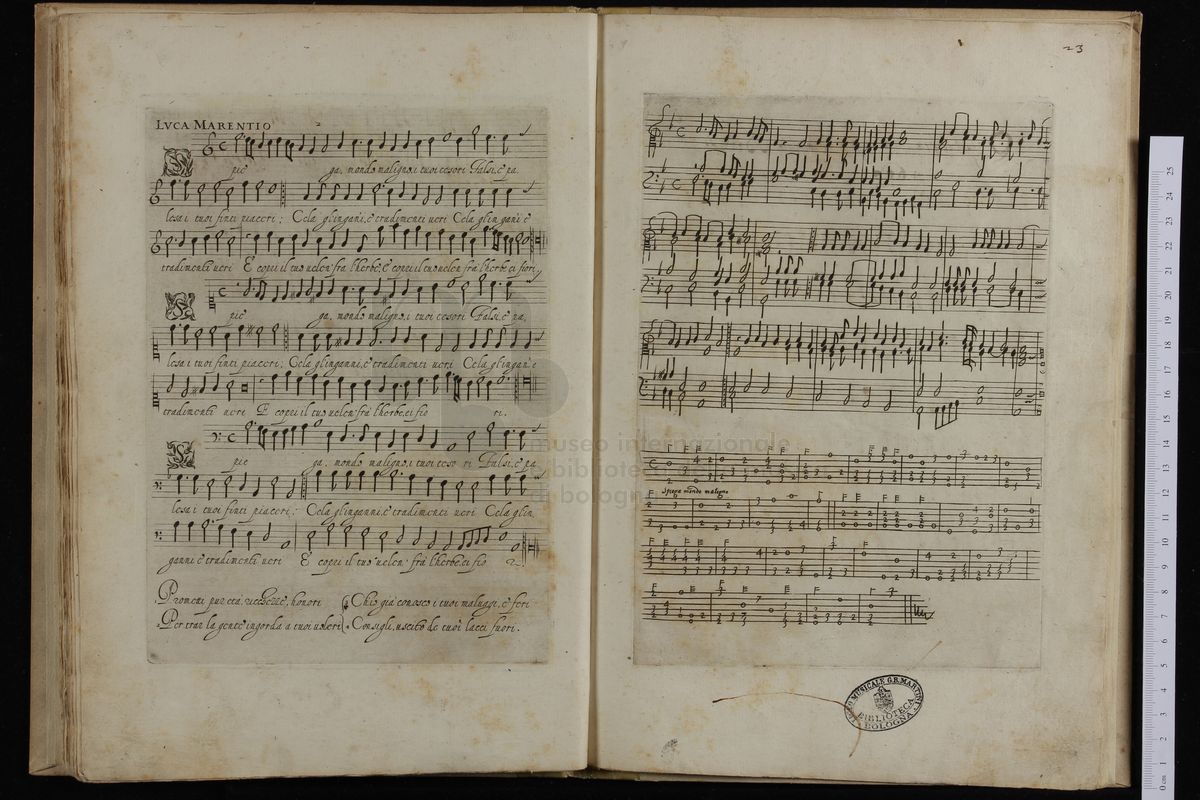 LVCA MARENTIO
pie ga, mondo maligno, i tuoi tesori Falsi, è pa
lesa i tuoi finti piaceri; Cela gl'ingani, è tradimenti ueri Cela gl'in gani è
tradimenti ueri E copri il tuo uelen fra l'herbe, è copri il tuo uelen fra l'herbe, ei fiori
pie ga, mondo maligno, i tuoi tesori Falsi, è pa,
lesa i tuoi finti piaceri; Cela gl'inganni, è tradimenti ueri Cela gl'ingan è
tradimenti ueri E copri il tuo uelen fra l'herbe, ei fio ri.
pie ga, mondo maligno, i tuoi teso ri Falsi, è pa
lesa i tuoi finti piaceri; Cela gl'inganni, è tradimenti ueri Cela gl'in
ganni è tradimenti ueri E copri il tuo uelen fra l'herbe, ei fio
Prometti pur età, ricchezze, honori
Per trar la gente ingorda a tuoi uoleri
Ch'io già conosco i tuoi maluagi, è feri
Consigli, uscito de tuoi lacci fuori.
23
Spiega mondo maligno
museo internazionale
e biblioteca
di bologna
LICEO MUSICALE G.B. MARTINI
BIBLIOTECA
BOLOGNA
0 cm 1 2 3 4 5 6 7 8 9 10 11 12 13 14 15 16 17 18 19 20 21 22 23 24 25